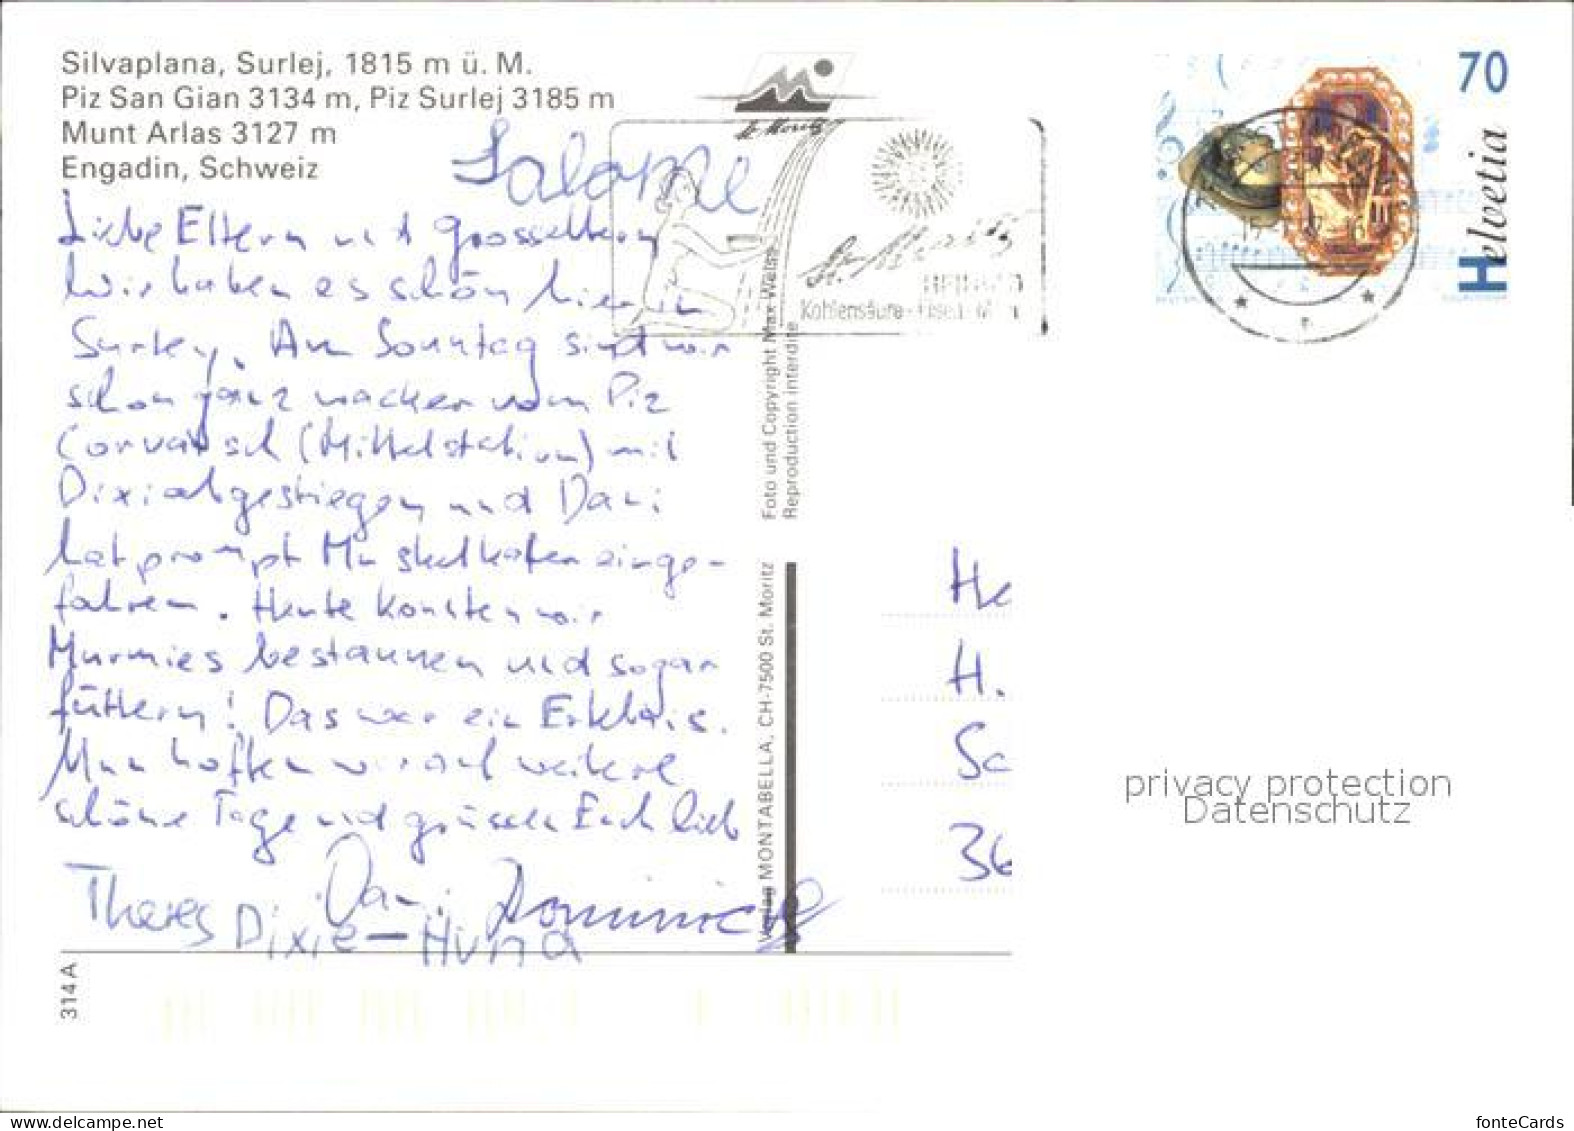 Silvaplana, Surlej, 1815 m ü. M.
Piz San Gian 3134 m, Piz Surlej 3185 m
Munt Arlas 3127 m
Engadin, Schweiz
Salome
Liebe Eltern und Grosseltern
Wir haben es schön hier in
Surley. Am Sonntag sind wir
schon ganz wacker vom Piz
Corvatsch (Mittelstation) mit
Dixi abgestiegen und Dani
hat prompt Muskelkater einge-
fahren. Heute konnten wir
Murmies bestaunen und sogar
füttern! Das war ein Erlebnis.
Nun hoffen wir auf weitere
schöne Tage und grüssen Euch lieb
Theres Dani Dominic
Dixie-Huna
314 A
St. Moritz
St. Moritz
HEILBAD
Kohlensäure - Eisen - Moor
Foto und Copyright Max Weiss
Reproduction interdite
Verlag MONTABELLA, CH-7500 St. Moritz
70
Helvetia
He
H.
Sa
36
privacy protection
Datenschutz
fonteCards